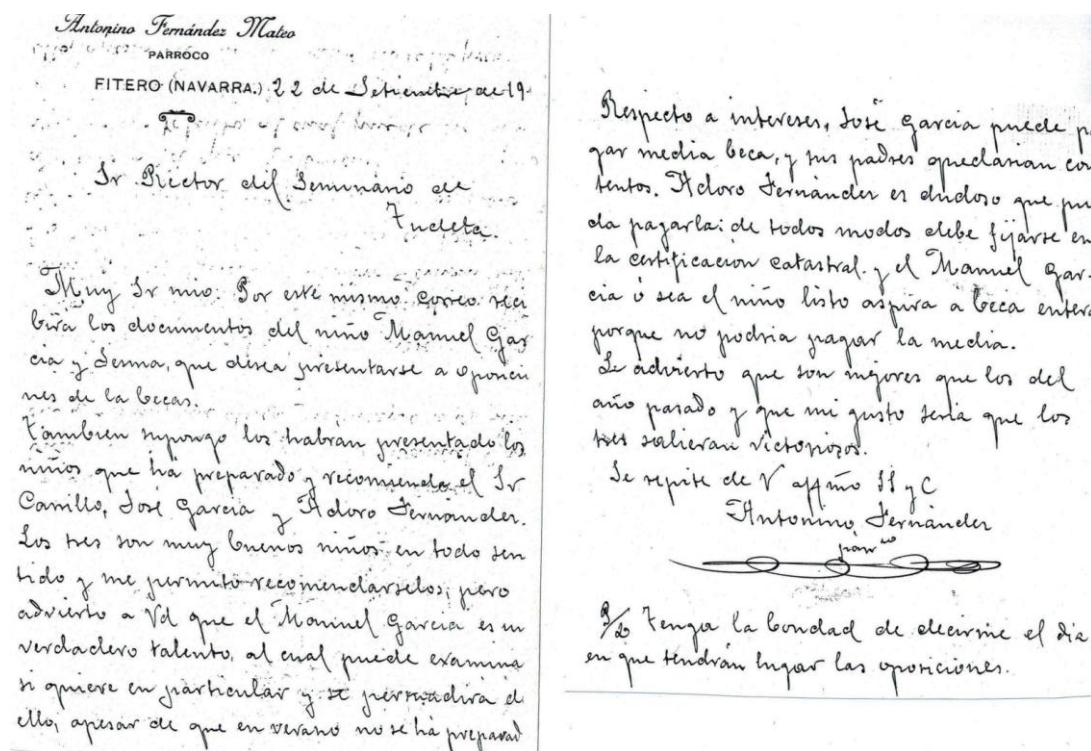 Antonino Fernández Mateo
PARROCO
FITERO (NAVARRA.) 22 de Setiembre de 19
Sr Rector del Seminario de
Tudela.
Muy Sr mio: Por este mismo correo reci
birá los documentos del niño Manuel Gar
cia y Sesma, que desea presentarse a oposicio
nes de la becas.
Tambien supongo los habrán presentado los
niños que ha preparado y recomienda el Sr
Carrillo, José Garcia y Adoro Fernandez.
Los tres son muy buenos niños en todo sen
tido y me permito recomendarselos; pero
advierto a Vd que el Manuel Garcia es un
verdadero talento, al cual puede examina
si quiere en particular y se persuadirá d
ello, apesar de que en verano no se ha preparad
Respecto a intereses, José Garcia puede p
gar media beca, y sus padres quedarian con
tentos. Adoro Fernández es dudoso que pue
da pagarla: de todos modos debe fijarse en
la certificacion catastral. y el Manuel Gar-
cia ó sea el niño listo aspira a beca entera
porque no podria pagar la media.
Le advierto que son mejores que los del
año pasado y que mi gusto seria que los
tres salieran victoriosos.
Se repite de V affmo SS y C
Antonino Fernández
parrco
P/D Tenga la bondad de decirme el dia
en que tendrán lugar las oposiciones.